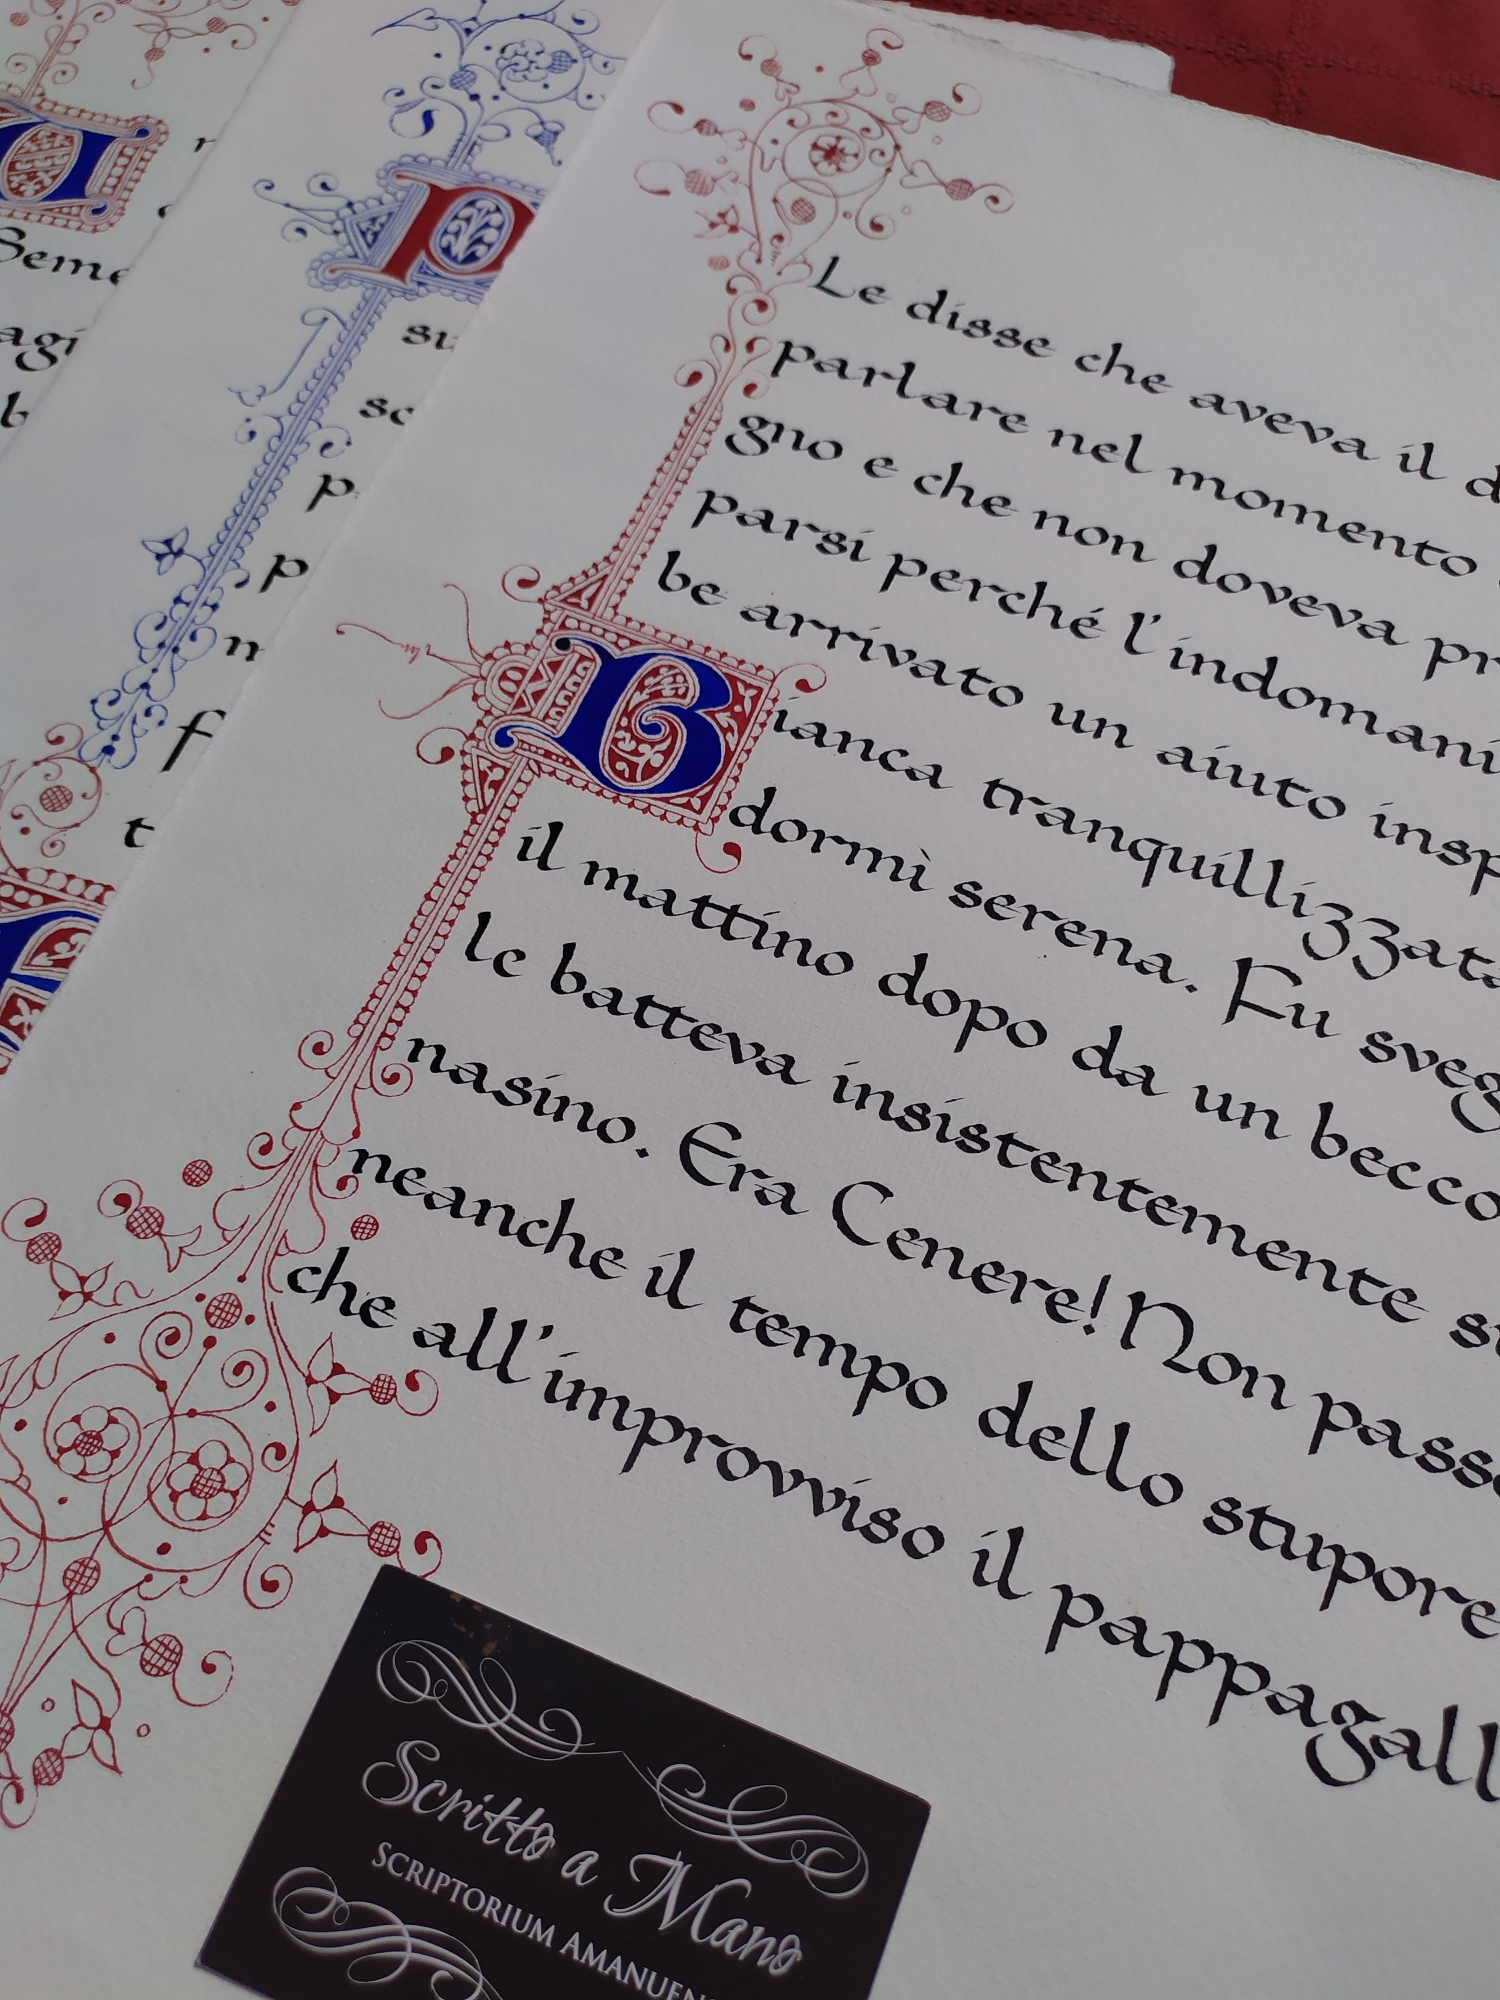 Seme
agi
b
P
su
sc
p
p
m
f
t
Le disse che aveva il d
parlare nel momento
gno e che non doveva pr
parsi perché l'indomani
be arrivato un aiuto insp
Bianca tranquillizzata
dormì serena. Fu sveg
il mattino dopo da un becco
le batteva insistentemente su
nasino. Era Cenere! Non pass
neanche il tempo dello stupore
che all'improvviso il pappagall
Scritto a Mano
SCRIPTORIUM AMANUENS